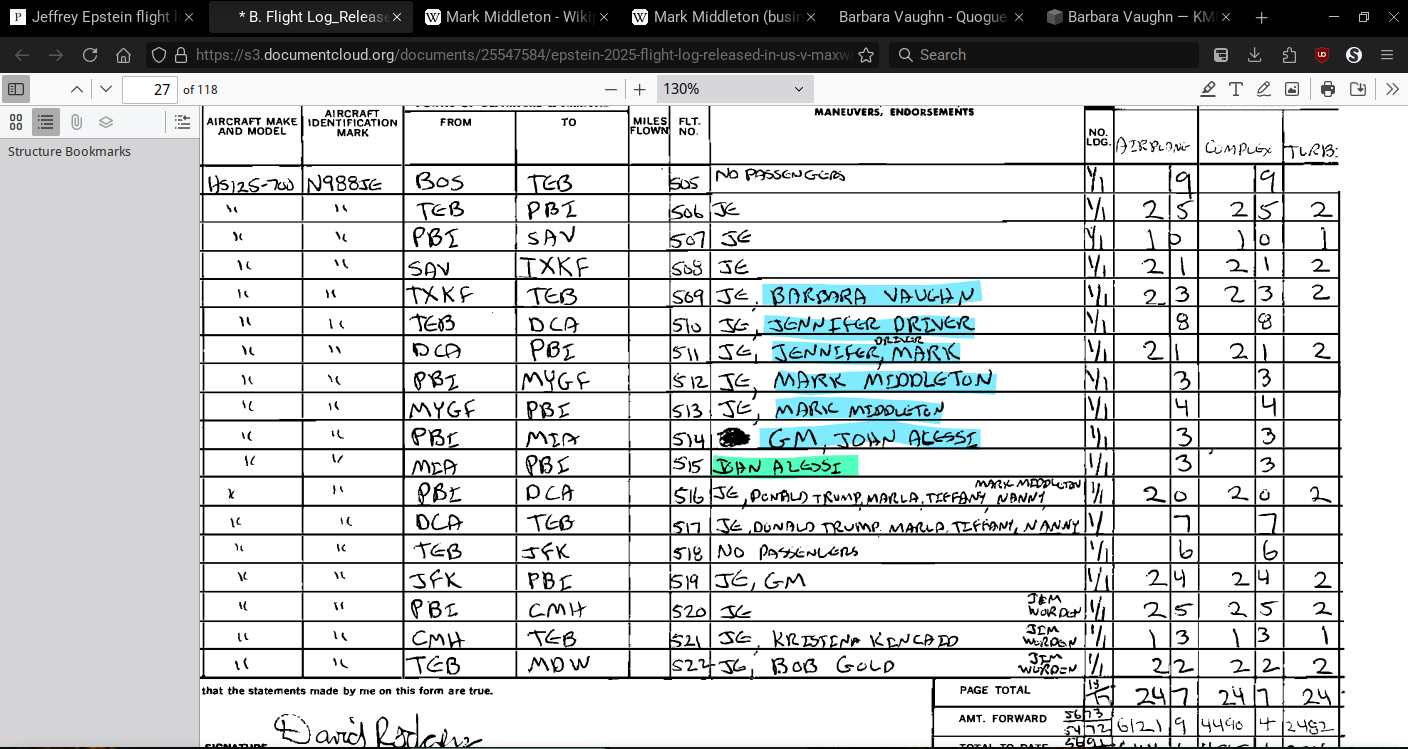 Jeffrey Epstein flight l
* B. Flight Log_Release
Mark Middleton - Wiki
Mark Middleton (busin
Barbara Vaughn - Quogue
Barbara Vaughn — KM
https://s3.documentcloud.org/documents/25547584/epstein-2025-flight-log-released-in-us-v-maxw
Search
27 of 118
130%
Structure Bookmarks
AIRCRAFT MAKE AND MODEL AIRCRAFT IDENTIFICATION MARK FROM TO MILES FLOWN FLT. NO. MANEUVERS, ENDORSEMENTS NO. LDG. AIRPLANE COMPLEX TURB
HS125-700 N988JE BOS TEB 505 NO PASSENGERS 1/1 9 9
" " TEB PBI 506 JE 1/1 2 5 2 5 2
" " PBI SAV 507 JE 1/1 1 0 1 0 1
" " SAV TXKF 508 JE 1/1 2 1 2 1 2
" " TXKF TEB 509 JE, BARBARA VAUGHN 1/1 2 3 2 3 2
" " TEB DCA 510 JE, JENNIFER DRIVER 1/1 8 8
" " DCA PBI 511 JE, JENNIFER DRIVER, MARK 1/1 2 1 2 1 2
" " PBI MYGF 512 JE, MARK MIDDLETON 1/1 3 3
" " MYGF PBI 513 JE, MARK MIDDLETON 1/1 4 4
" " PBI MIA 514 GM, JOHN ALESSI 1/1 3 3
" " MIA PBI 515 JOHN ALESSI 1/1 3 3
" " PBI DCA 516 JE, DONALD TRUMP, MARLA, TIFFANY, NANNY MARK MIDDLETON 1/1 2 0 2 0 2
" " DCA TEB 517 JE, DONALD TRUMP, MARLA, TIFFANY, NANNY 1/ 7 7
" " TEB JFK 518 NO PASSENGERS 1/1 6 6
" " JFK PBI 519 JE, GM 1/1 2 4 2 4 2
" " PBI CMH 520 JE JIM WORDEN 1/1 2 5 2 5 2
" " CMH TEB 521 JE, KRISTINA KINCAID JIM WORDEN 1/1 1 3 1 3 1
" " TEB MDW 522 JE, BOB GOLD JIM WORDEN 1/1 2 2 2 2 2
that the statements made by me on this form are true.
PAGE TOTAL 24 7 24 7 24
AMT. FORWARD 5673 5472 6121 9 4490 4 2482
David Rodgers
SIGNATURE
TOTAL TO DATE